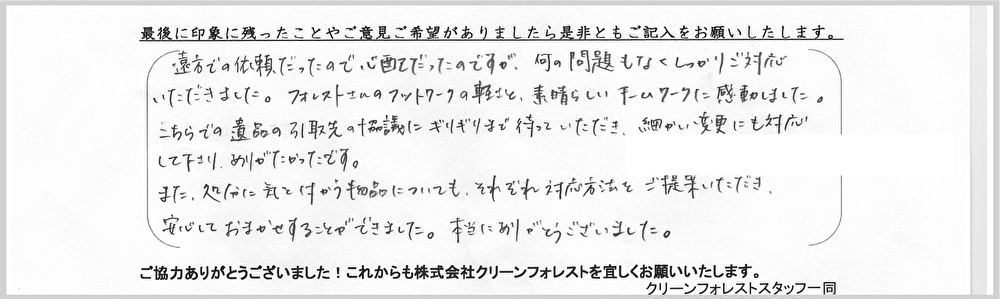 最後に印象に残ったことやご意見ご希望がありましたら是非ともご記入をお願いしたします。
遠方での依頼だったので心配だったのですが、何の問題もなくしっかりご対応
いただきました。フォレストさんのフットワークの軽さと、素晴らしいチームワークに感動しました。
こちらでの遺品の引取先の協議にギリギリまで待っていただき、細かい変更にも対応
して下さり、ありがたかったです。
また、処分に気を付かう物品についても、それぞれ対応方法をご提案いただき、
安心しておまかせすることができました。本当にありがとうございました。
ご協力ありがとうございました！これからも株式会社クリーンフォレストを宜しくお願いいたします。
クリーンフォレストスタッフ一同